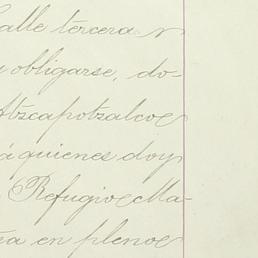 Calle tercera n
y obligarse, do-
Atzcapotzalco
á quienes doy
Refugio Ma-
en pleno